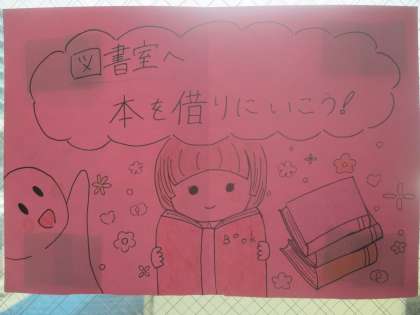 図書室へ
本を借りにいこう!
Book